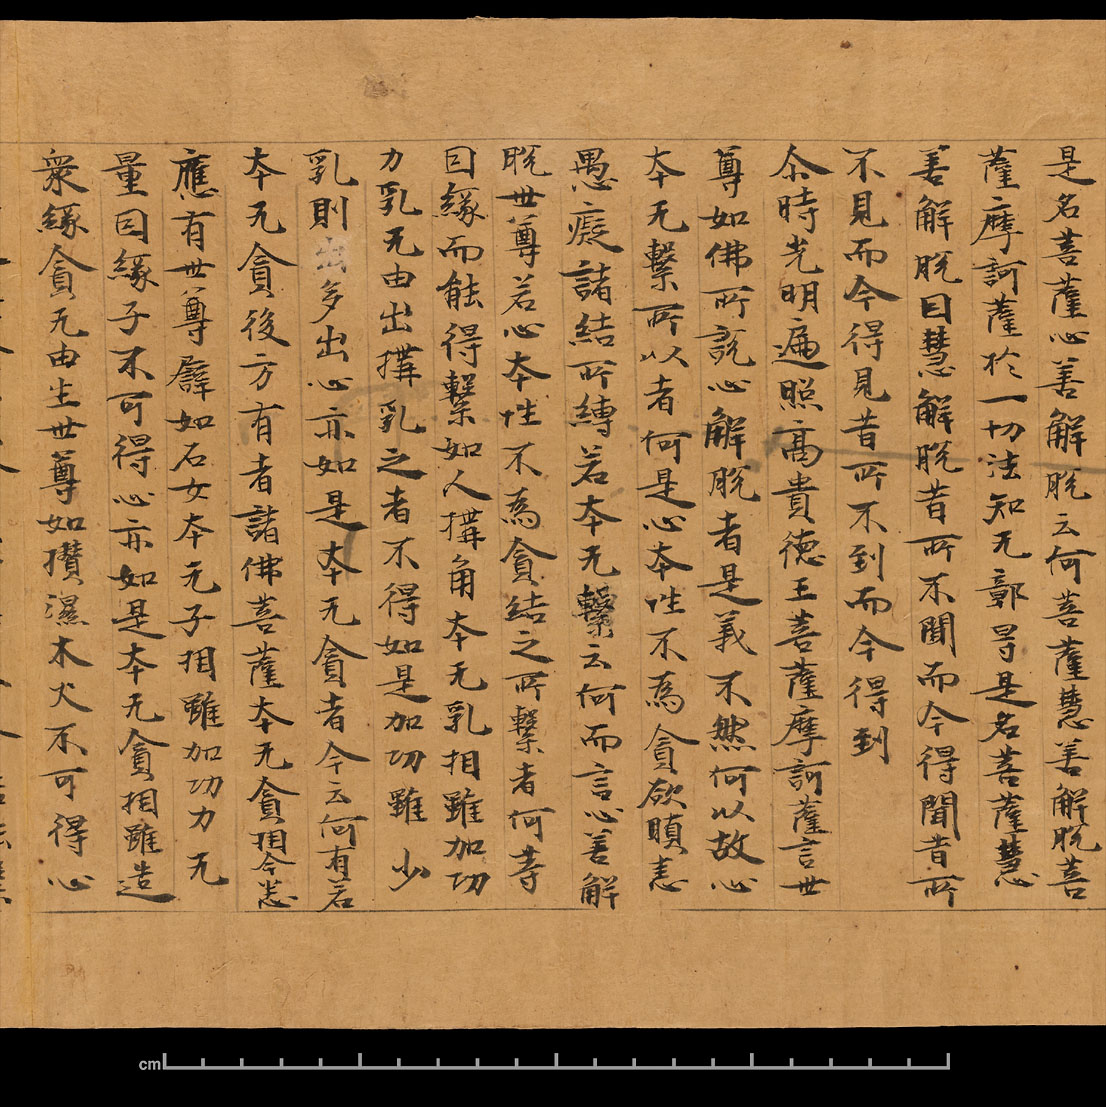 是名菩薩心善解脫云何菩薩慧善解脫菩
薩摩訶薩於一切法知无鄣㝵是名菩薩慧
善解脫因慧解脫昔所不聞而今得聞昔所
不見而今得見昔所不到而今得到
尒時光明遍照高貴德王菩薩摩訶薩言世
尊如佛所說心解脫者是義不然何以故心
本无繫所以者何是心本性不為貪欲瞋恚
愚癡諸結所縛若本无繫云何而言心善解
脫世尊若心本性不為貪結之所繫者何等
因緣而能得繫如人搆角本无乳相雖加功
力乳无由出搆乳之者不得如是加功雖少
乳則出多出心亦如是本无貪者今云何有若
本无貪後方有者諸佛菩薩本无貪相今悉
應有世尊譬如石女本无子相雖加功力无
量因緣子不可得心亦如是本无貪相雖造
衆緣貪无由生世尊如攢濕木火不可得心